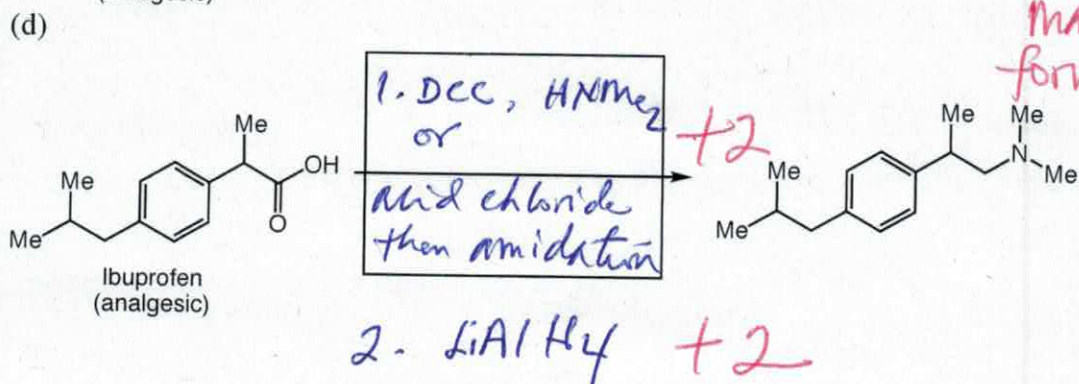 (d)
1. DCC, HNMe2
or
acid chloride
then amidation
+2
Me
Me
Me
OH
O
Ibuprofen
(analgesic)
Me
Me
Me
Me
N
Me
2. LiAlH4 +2